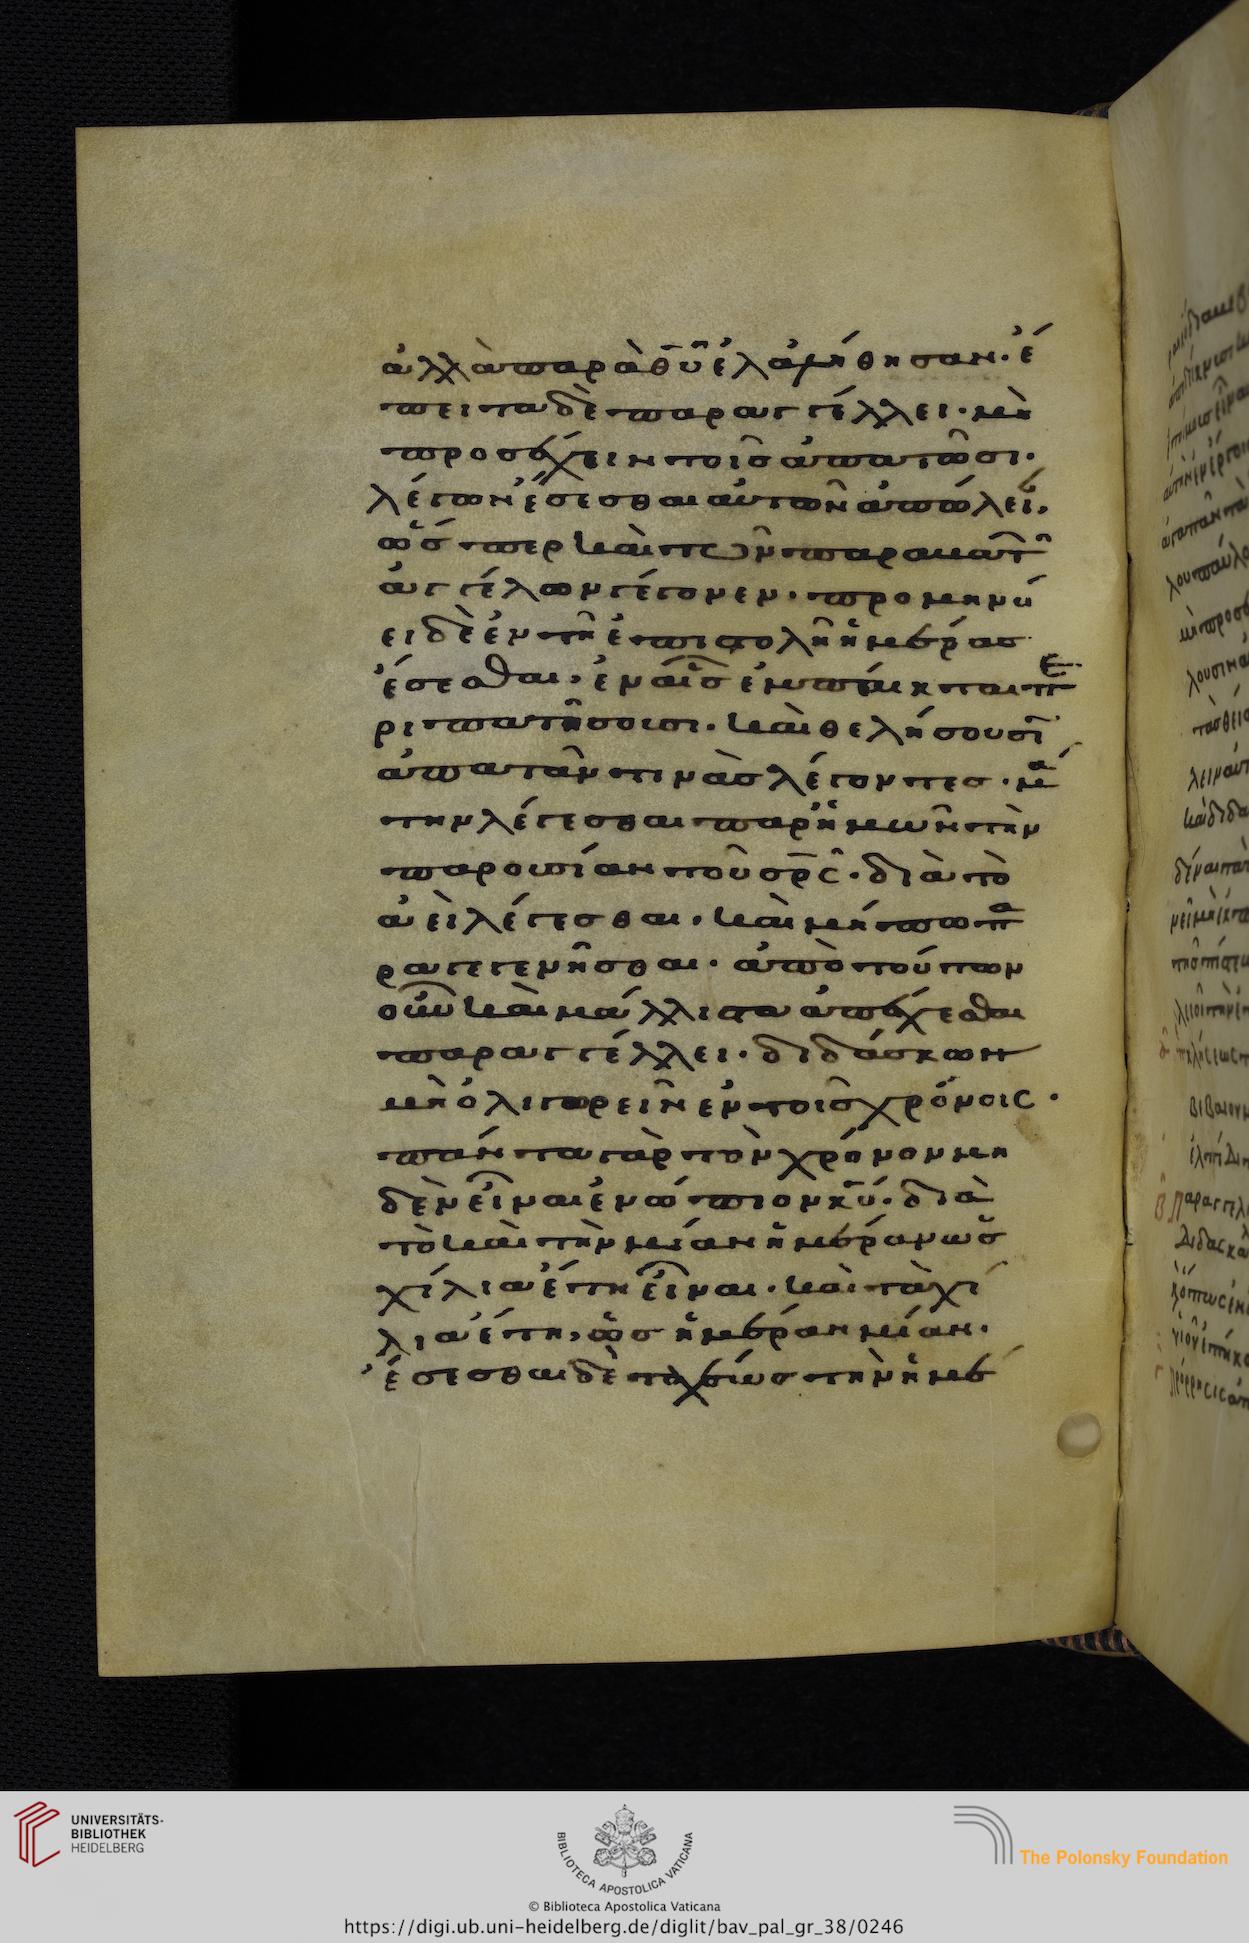 ἀλλὰ παρὰ θῦ ἐλαλήθησαν· ἔ
πειτα δὲ παραγγέλλει· μὴ
προσέχειν τοῖς ἀπατῶσι·
λέγων ἔσεσθαι αὐτῶν ἀπώλει,
ὥσπερ καὶ τῶν παρακατ
ἀγγέλων γέγονεν· προμηνύ
ει δὲ ἐν τῇ ἐπιστολῇ ἡμέρας
ἔσεσθαι, ἐν αἷς ἐμπαῖκται πε
ριπατήσουσι· καὶ θελήσουσι
ἀπατᾶν τινὰς λέγοντες· μά
την λέγεσθαι παρ' ἡμῶν τὴν
παρουσίαν τοῦ σρς· διὰ τὸ
ἀεὶ λέγεσθαι, καὶ μήπω πα
ραγεγενῆσθαι· ἀπὸ τούτων
οὖν καὶ μάλλιστα ἀπέχεσθαι
παραγγέλλει· διδάσκων
μὴ ὀλιγωρεῖν ἐν τοῖς χρόνοις·
πάντα γὰρ τὸν χρόνον μη
δὲν εἶναι ἐνώπιον κῦ· διὰ
τὸ καὶ τὴν μίαν ἡμέραν ὡς
χίλια ἔτη εἶναι· καὶ τὰ χί
λια ἔτη, ὡς ἡμέραν μίαν·
ἔσεσθαι δὲ ταχέως τὴν ἡμέ
UNIVERSITÄTS-
BIBLIOTHEK
HEIDELBERG
BIBLIOTECA APOSTOLICA VATICANA
The Polonsky Foundation
© Biblioteca Apostolica Vaticana
https://digi.ub.uni-heidelberg.de/diglit/bav_pal_gr_38/0246